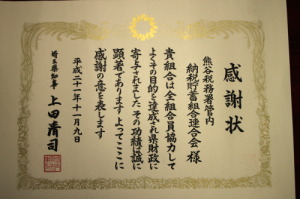 感謝状
熊谷税務署管内
納税貯蓄組合連合会 様
貴組合は全組合員協力して
よくその目的を達成され県財政に
寄与されました その功績は誠に
顕著であります よってここに
感謝の意を表します
平成二十一年十一月九日
埼玉県知事 上田清司